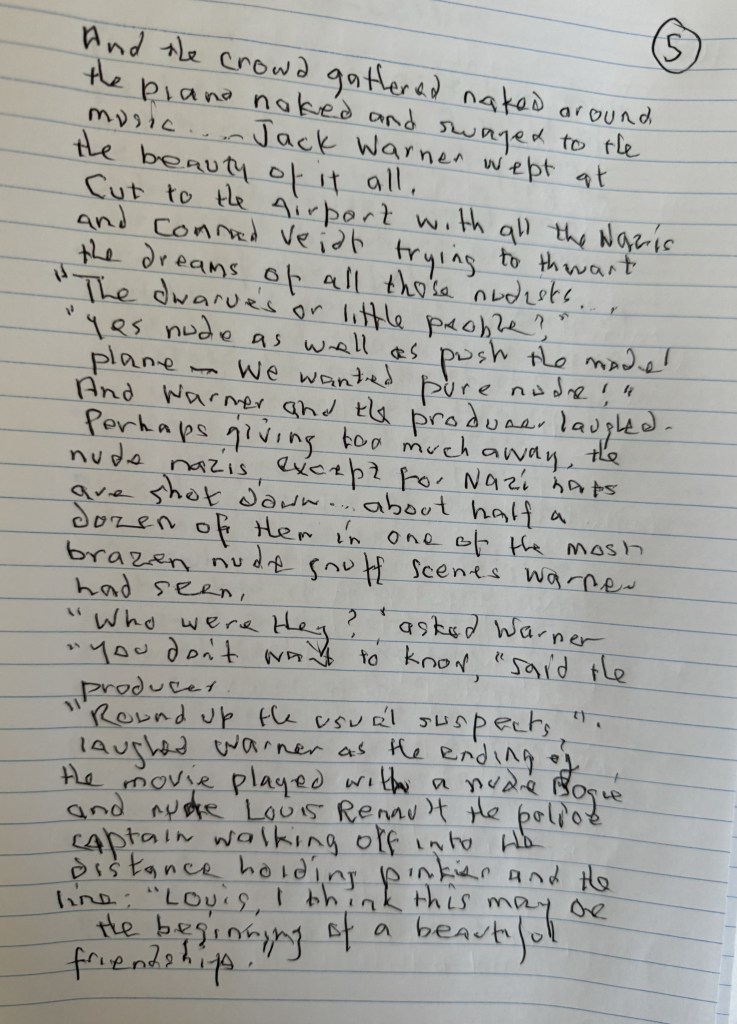 5
And the crowd gathered naked around
the piano naked and swayed to the
music.... Jack Warner wept at
the beauty of it all.
Cut to the airport with all the Nazis
and Conrad Veidt trying to thwart
the dreams of all those nudists....
"The dwarves or little people?"
"Yes nude as well as push the model
plane — We wanted pure nude!"
And Warner and the producer laughed.
Perhaps giving too much away, the
nude nazis except for Nazi hats
are shot down... about half a
dozen of them in one of the most
brazen nude snuff scenes Warner
had seen.
"Who were they?" asked Warner
"You don't want to know," said the
producer.
"Round up the usual suspects,"
laughed Warner as the ending of
the movie played with a nude Bogie
and nude Louis Renault the police
captain walking off into the
distance holding pinkies and the
line: "Louis, I think this may be
the beginning of a beautiful
friendship."